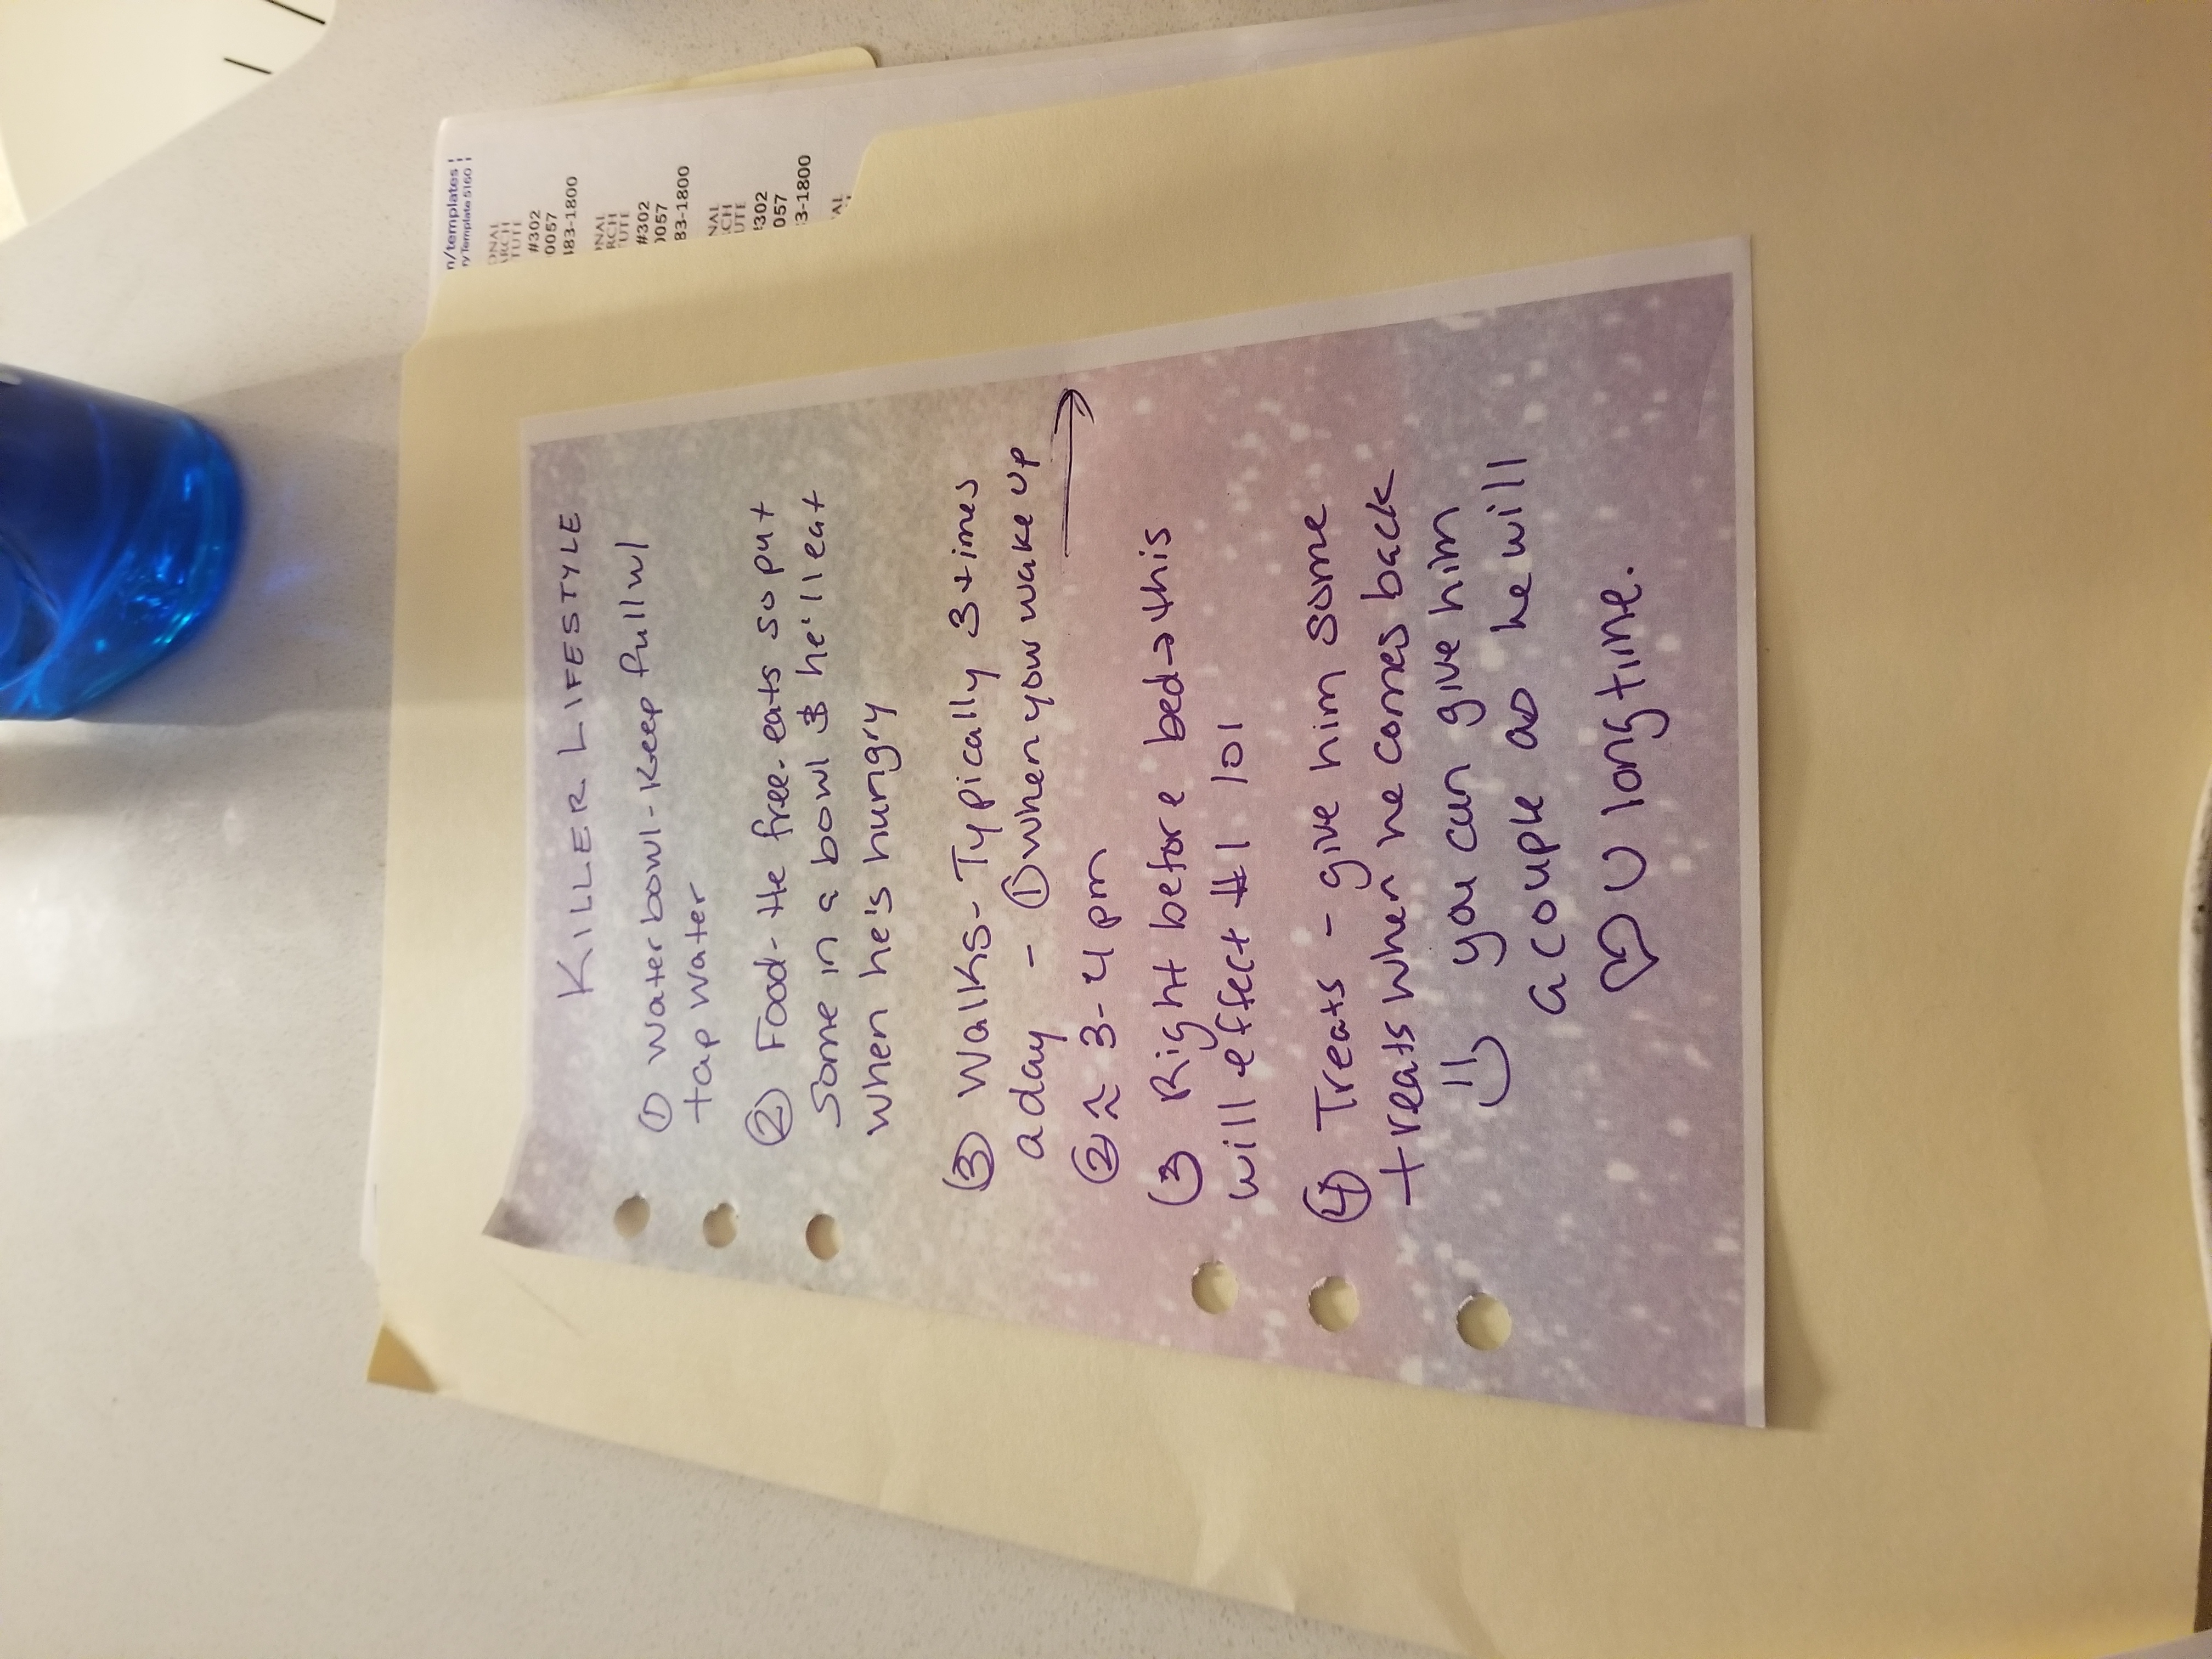 KILLER LIFESTYLE
① waterbowl - Keep full w/
tap water
② Food - He free-eats so put
some in a bowl & he'll eat
when he's hungry
③ Walks - Typically 3 times
a day - ① when you wake up
② ≈ 3-4 pm
③ Right before bed → this
will effect #1 lol
④ Treats - give him some
treats when he comes back
you can give him
a couple as he will
♡ U long time.
n/templates
ry Template 5160
#302
0057
483-1800
#302
0057
83-1800
#302
057
3-1800